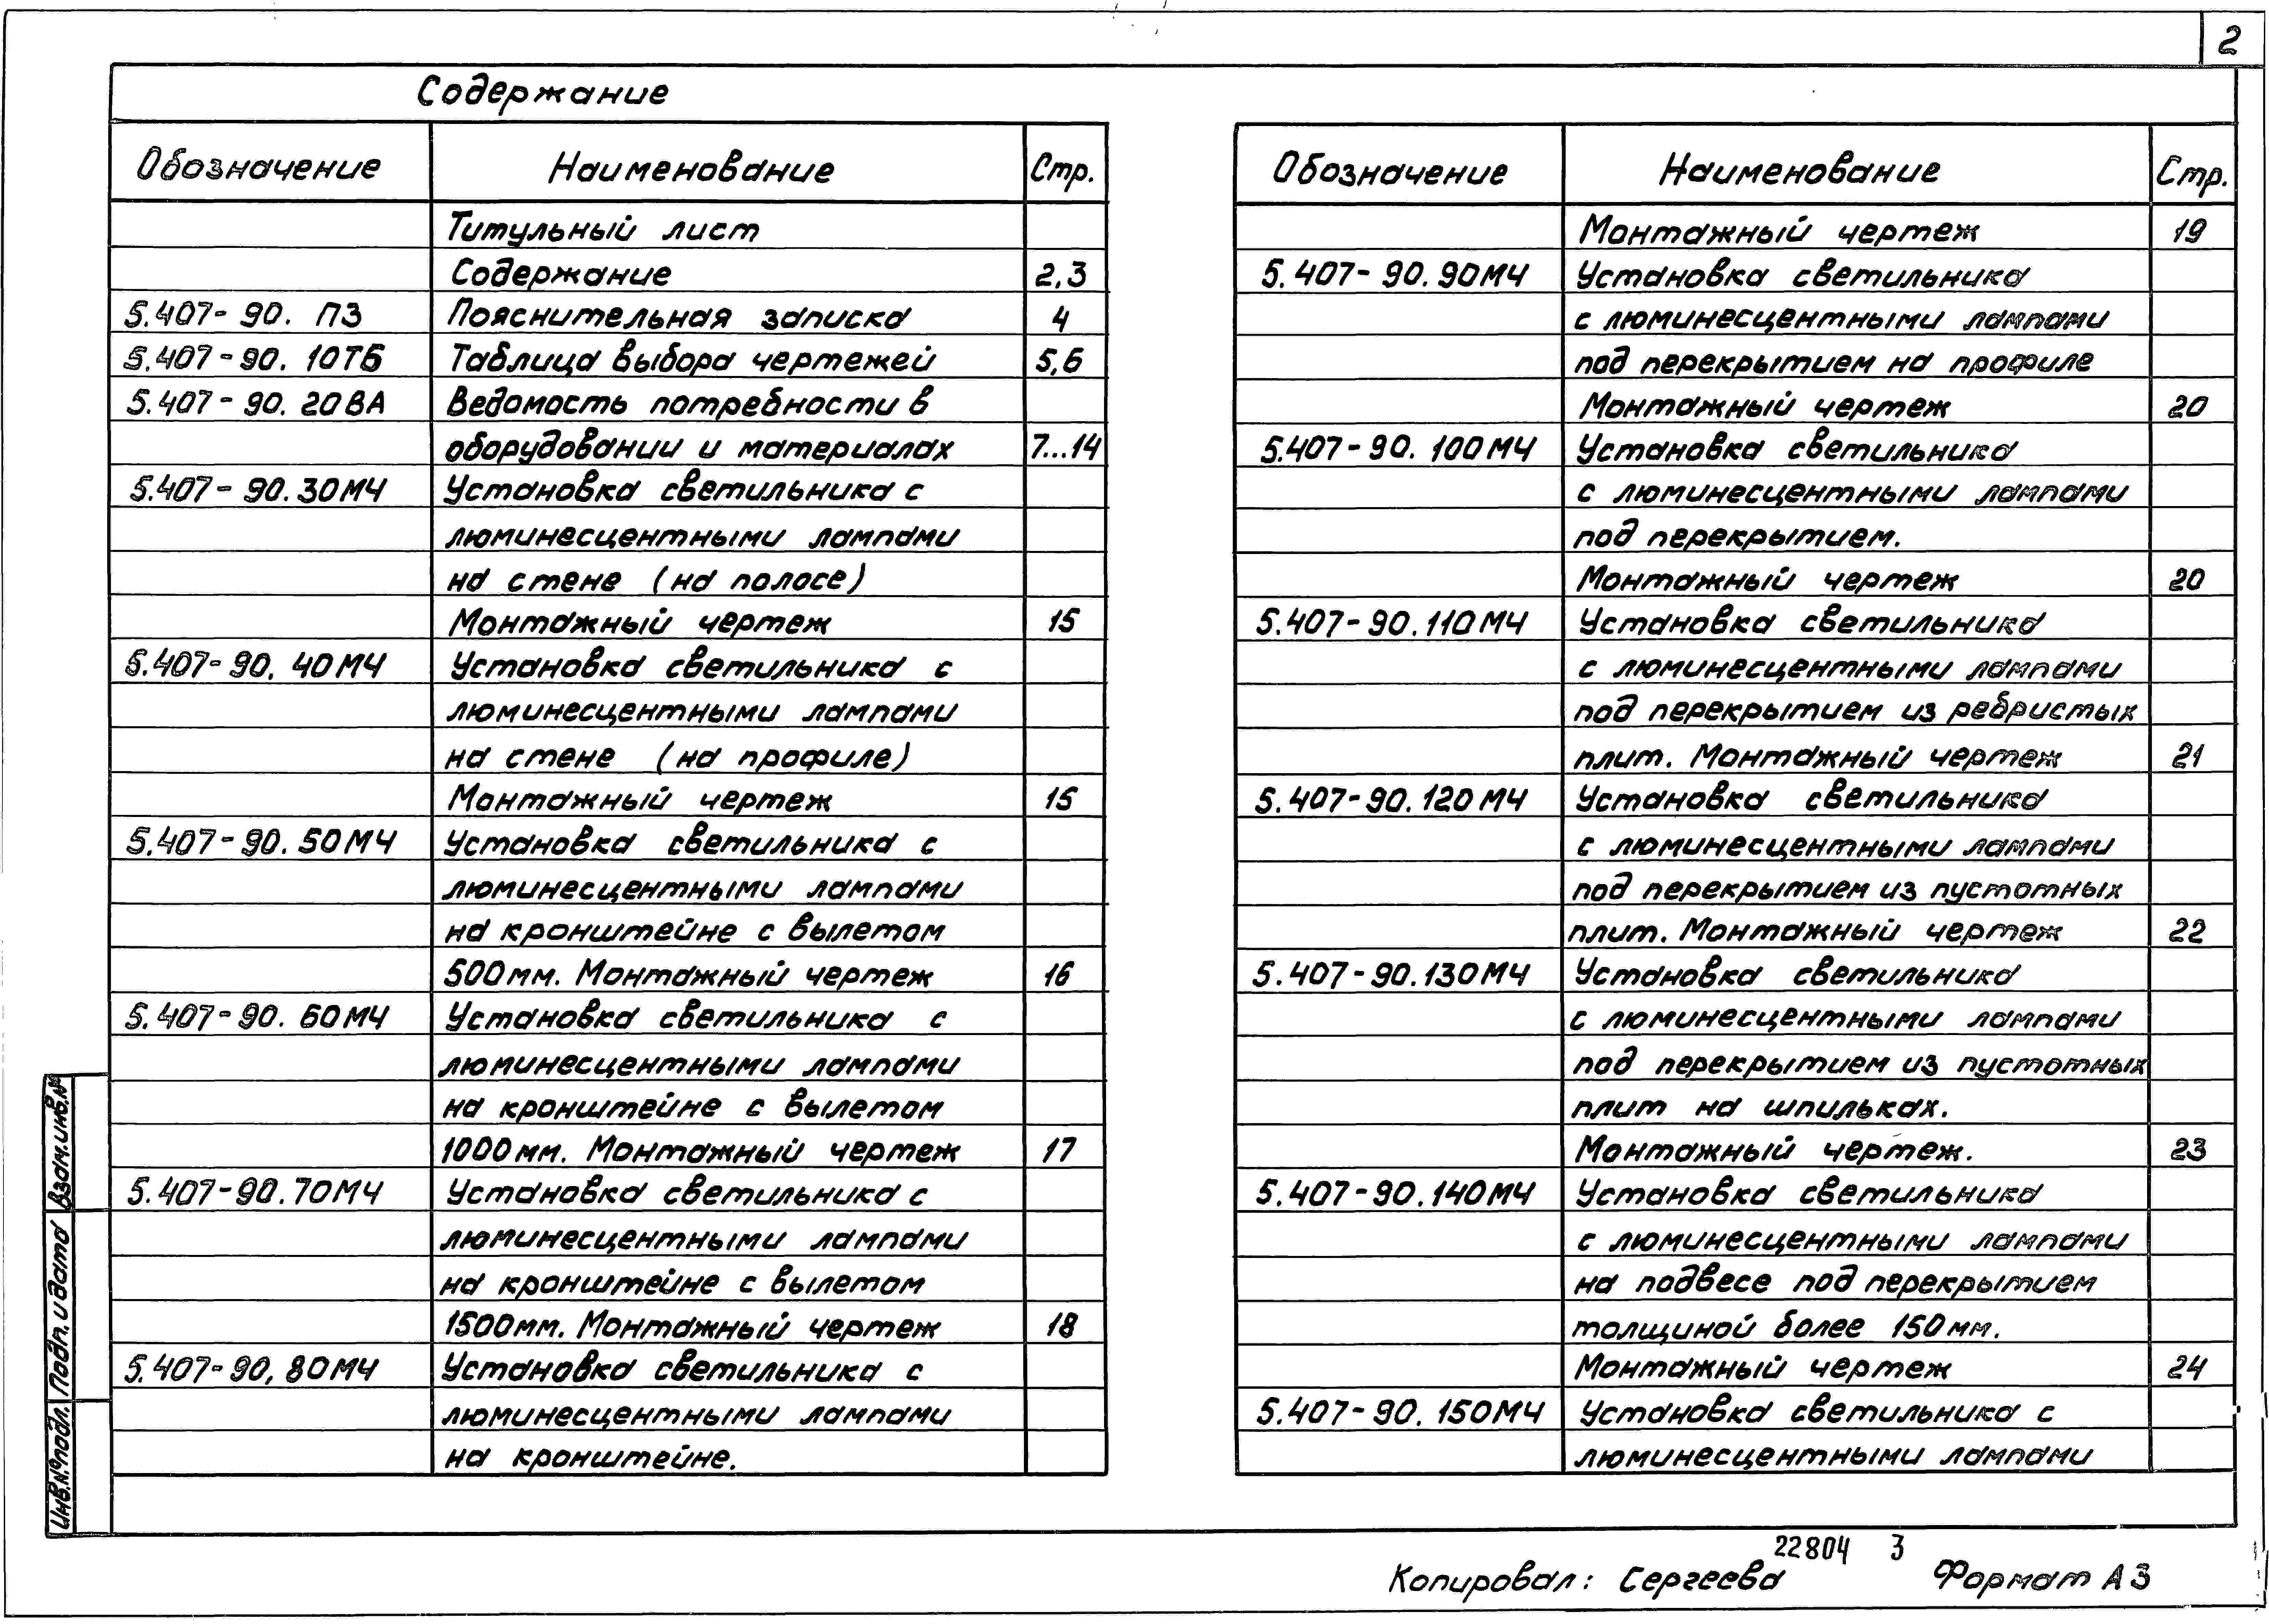 2
Содержание
Обозначение Наименование Стр.
Титульный лист
Содержание 2,3
5.407-90. ПЗ Пояснительная записка 4
5.407-90. 10ТБ Таблица выбора чертежей 5,6
5.407-90. 20ВА Ведомость потребности в
оборудовании и материалах 7...14
5.407-90.30МЧ Установка светильника с
люминесцентными лампами
на стене (на полосе)
Монтажный чертеж 15
5.407-90. 40МЧ Установка светильника с
люминесцентными лампами
на стене (на профиле)
Монтажный чертеж 15
5.407-90. 50МЧ Установка светильника с
люминесцентными лампами
на кронштейне с вылетом
500мм. Монтажный чертеж 16
5.407-90. 60МЧ Установка светильника с
люминесцентными лампами
на кронштейне с вылетом
1000мм. Монтажный чертеж 17
5.407-90.70МЧ Установка светильника с
люминесцентными лампами
на кронштейне с вылетом
1500мм. Монтажный чертеж 18
5.407-90, 80МЧ Установка светильника с
люминесцентными лампами
на кронштейне.
Обозначение Наименование Стр.
Монтажный чертеж 19
5.407-90. 90МЧ Установка светильника
с люминесцентными лампами
под перекрытием на профиле
Монтажный чертеж 20
5.407-90. 100МЧ Установка светильника
с люминесцентными лампами
под перекрытием.
Монтажный чертеж 20
5.407-90.110МЧ Установка светильника
с люминесцентными лампами
под перекрытием из ребристых
плит. Монтажный чертеж 21
5.407-90.120МЧ Установка светильника
с люминесцентными лампами
под перекрытием из пустотных
плит. Монтажный чертеж 22
5.407-90.130МЧ Установка светильника
с люминесцентными лампами
под перекрытием из пустотных
плит на шпильках.
Монтажный чертеж. 23
5.407-90.140МЧ Установка светильника
с люминесцентными лампами
на подвесе под перекрытием
толщиной более 150мм.
Монтажный чертеж 24
5.407-90. 150МЧ Установка светильника с
люминесцентными лампами
Взам.инв.№
Подп. и дата
Инв.№ подл.
22804 3
Копировал: Сергеева Формат А3